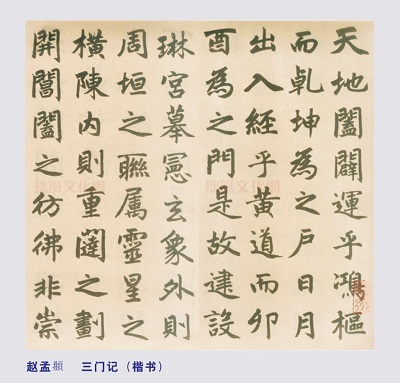 天地闔闢運乎鴻樞
而乹坤為之戶日月
出入經乎黃道而夘
酉為之門是故建設
琳宮摹憲玄象外則
周垣之聮属靈星之
橫陳内則重闥之劃
開閶闔之彷彿非崇
赵孟頫 三门记（楷书）